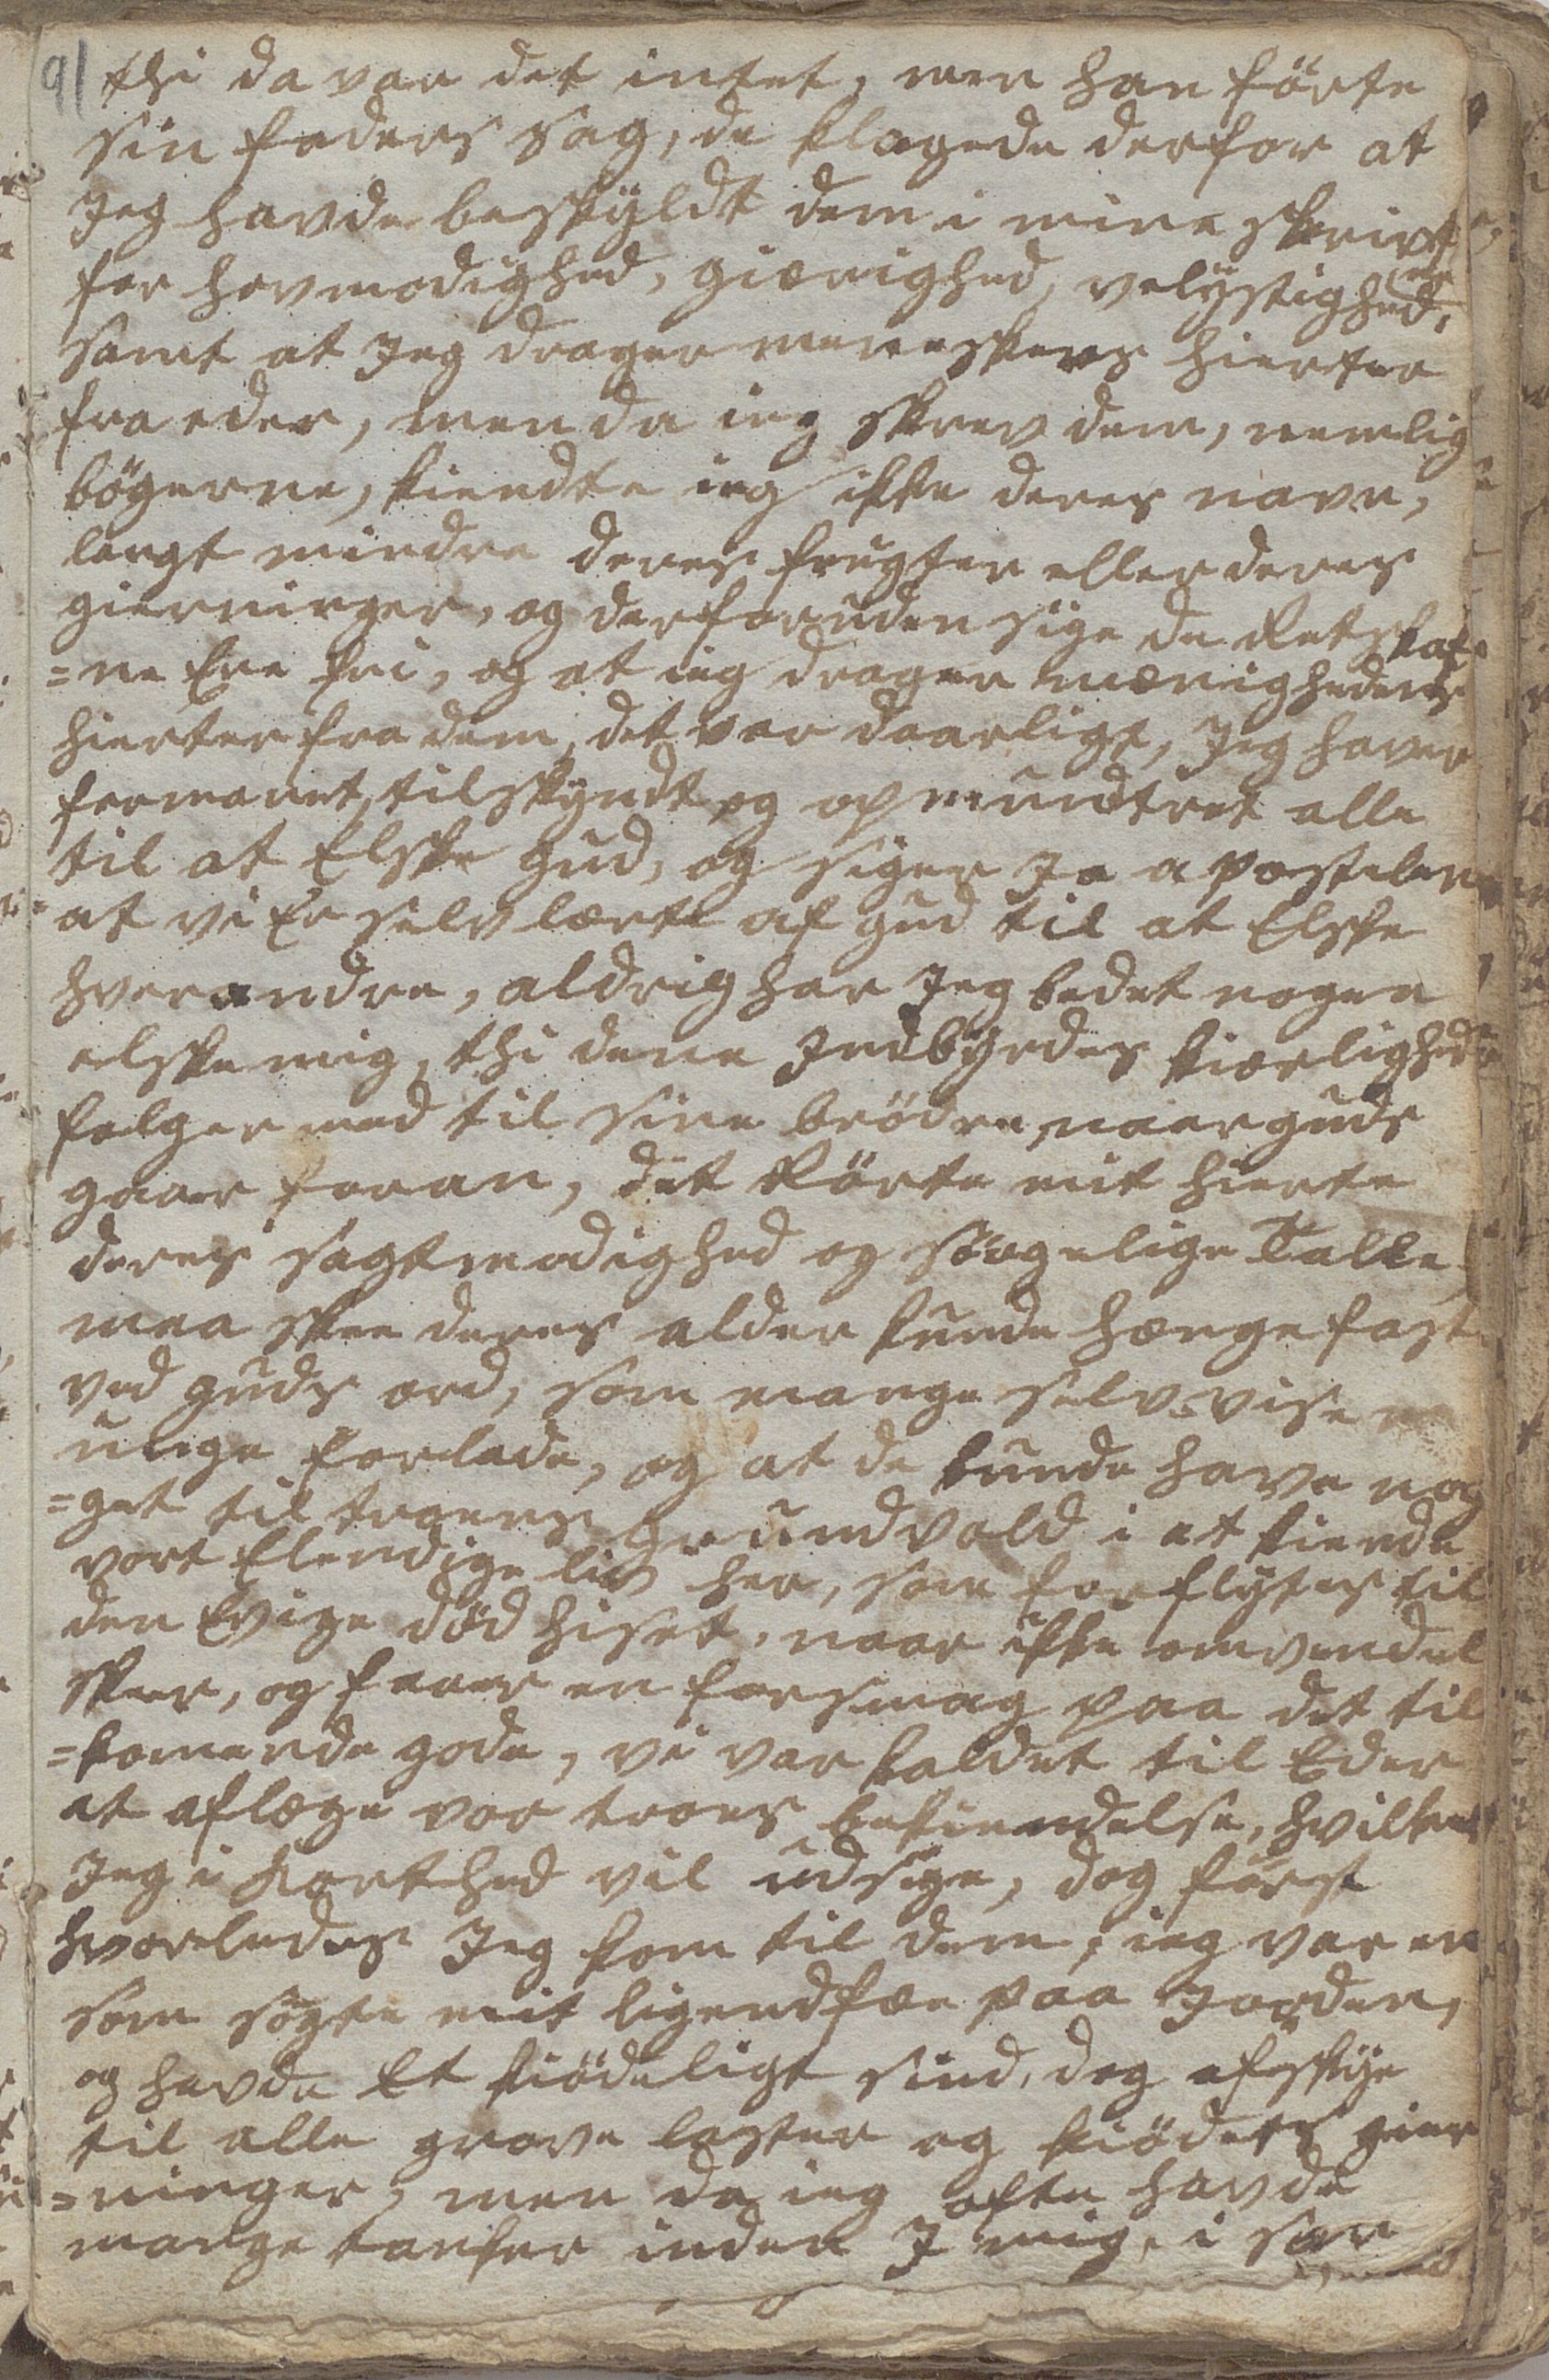 91
thi da var det intet, men han förte
sin faders sag, de klagede derfor at
Jeg havde beskÿldt dem i mine skrivt
er
for hovmodighed, gierighed, velÿstighed,
samt at Jeg drager menneskers hierter
fra eder, men da ieg skrev dem, nemlig
bögerne, kiendte ieg ikke deres navn,
langt mindre deres frugter eller deres
gierninger, og derforuden sige de Retskaf
=ne Ere fri, og at ieg drager meenighedens
hierter fra dem, det var daarligt, Jeg haver
formanet, tilskÿndt og opmuntret alle
til at Elske gud, og siger Ja apostelen
at vi Er selv lærte af gud til at Elske
hverandre, aldrig har Jeg bedet nogen
elske mig, thi dene Indbÿrdes kiærlighed
følger med til sine brödre, naar guds
gaar foran, det Rörte mit hierte
deres sagtmodighed og sörgelige Talle,
maa skee deres alder kunde hænge fast
ved guds ord, som mange selv-vise
unge forlade, og at de kunde have nog
=get til troens grundvold i at kiende
vort Elendige liv her, som forflÿtes til
den Evige död hiset, naar ikke omvendel
skeer, og faaer en forsmag paa det til
=komende gode, vi var kaldet til Eder
at aflege vor troes bekiendelse, hvilket
Jeg i korthed vil udsige, dog först
hvorledes Jeg kom til dem, ieg var en
som sögte mit ligendfæe paa Jorden,
og havde Et kiödeligt sind, dog afskÿe
til alle grove laster og kiödets gier
=ninger, men da ieg ofte havde
mange tanker inden I mig, i sær